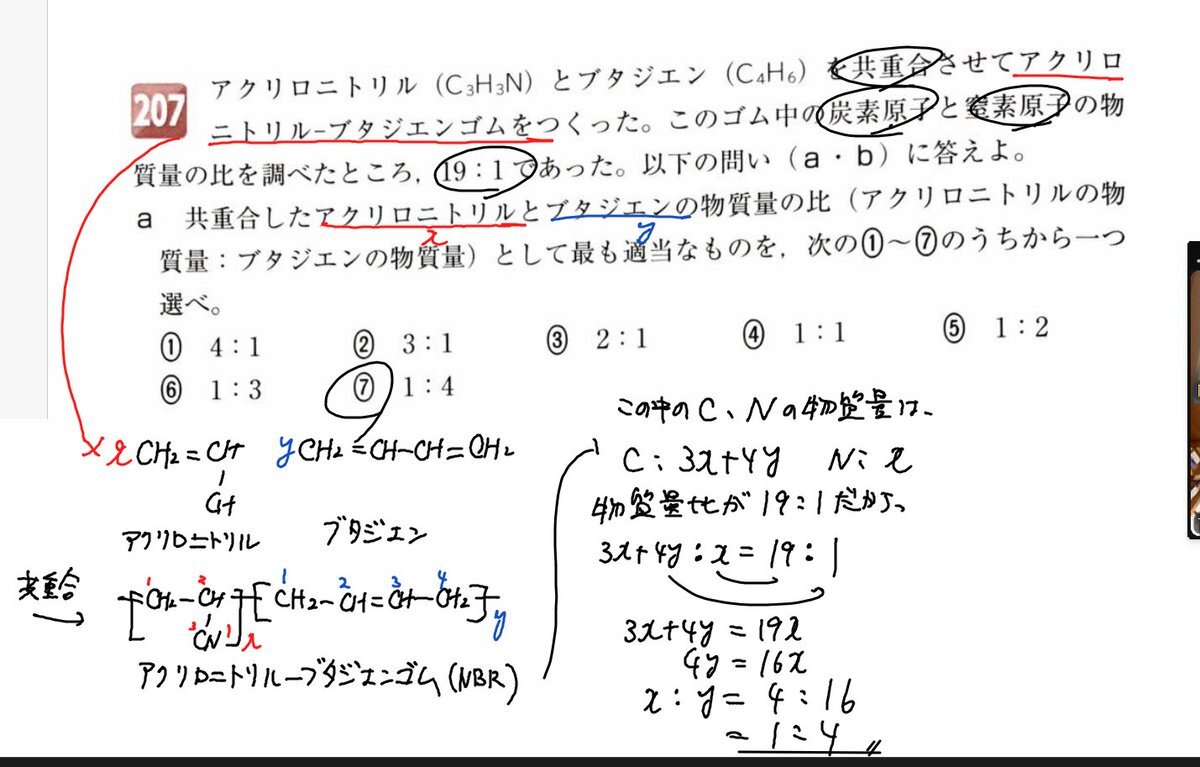 207 アクリロニトリル（C₃H₃N）とブタジエン（C₄H₆）を共重合させてアクリロ
ニトリル-ブタジエンゴムをつくった。このゴム中の炭素原子と窒素原子の物
質量の比を調べたところ，19：1であった。以下の問い（a・b）に答えよ。
a 共重合したアクリロニトリルとブタジエンの物質量の比（アクリロニトリルの物
x y
質量：ブタジエンの物質量）として最も適当なものを，次の①～⑦のうちから一つ
選べ。
① 4：1 ② 3：1 ③ 2：1 ④ 1：1 ⑤ 1：2
⑥ 1：3 ⑦ 1：4
xCH₂=CH yCH₂=CH-CH=CH₂
アクリロニトリル ブタジエン
共重合
[CH₂-CH]x [CH₂-CH=CH-CH₂]y
1 2 1 2 3 4
3 CN 1
アクリロニトリル-ブタジエンゴム(NBR)
この中のC、Nの物質量は、
C：3x+4y N：x
物質量比が19：1だから、
3x+4y：x=19：1
3x+4y=19x
4y=16x
x：y=4：16
=1：4